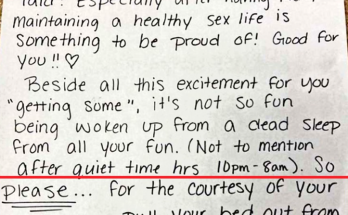 maintaining a healthy sex life is
something to be proud of! Good for
you!!♡
Beside all this excitement for you
"getting some", it's not so fun
being woken up from a dead sleep
from all your fun. (Not to mention
after quiet time hrs 10pm-8am). So
please... for the courtesy of your
your bed out from